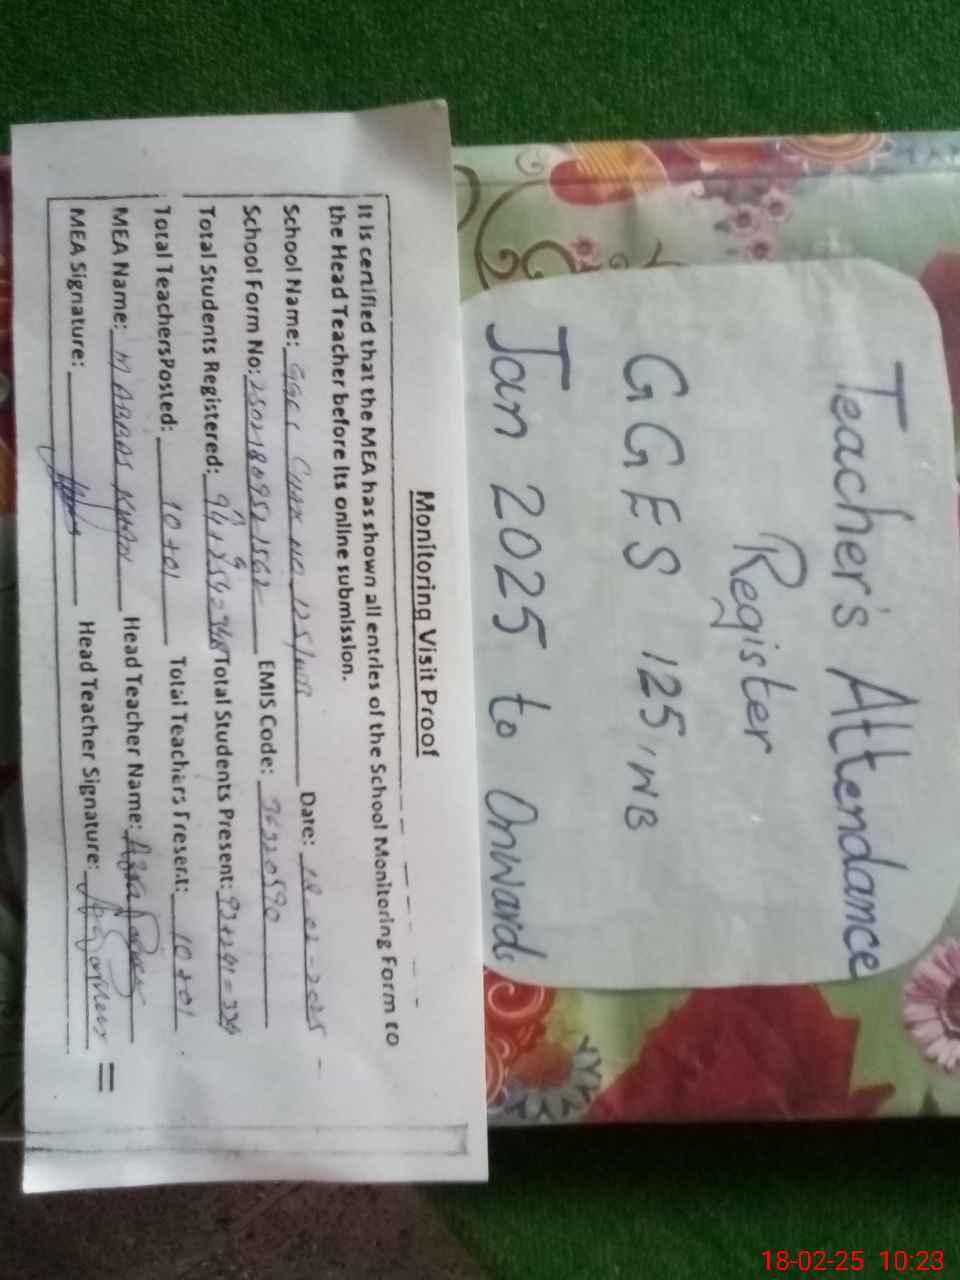 Teacher's Attendance
Register
GGES 125/NB
Jan 2025 to Onwards
Monitoring Visit Proof
It is certified that the MEA has shown all entries of the School Monitoring Form to
the Head Teacher before its online submission.
School Name: GGES Chak No 125/NB Date: 18-02-2025
School Form No: EMIS Code:
Total Students Registered: 94+254=348 Total Students Present: 93+241=334
Total Teachers Posted: 10+01 Total Teachers Present: 10+01
MEA Name: M ABBAS KHAN Head Teacher Name: Azra
MEA Signature: Head Teacher Signature:
18-02-25 10:23